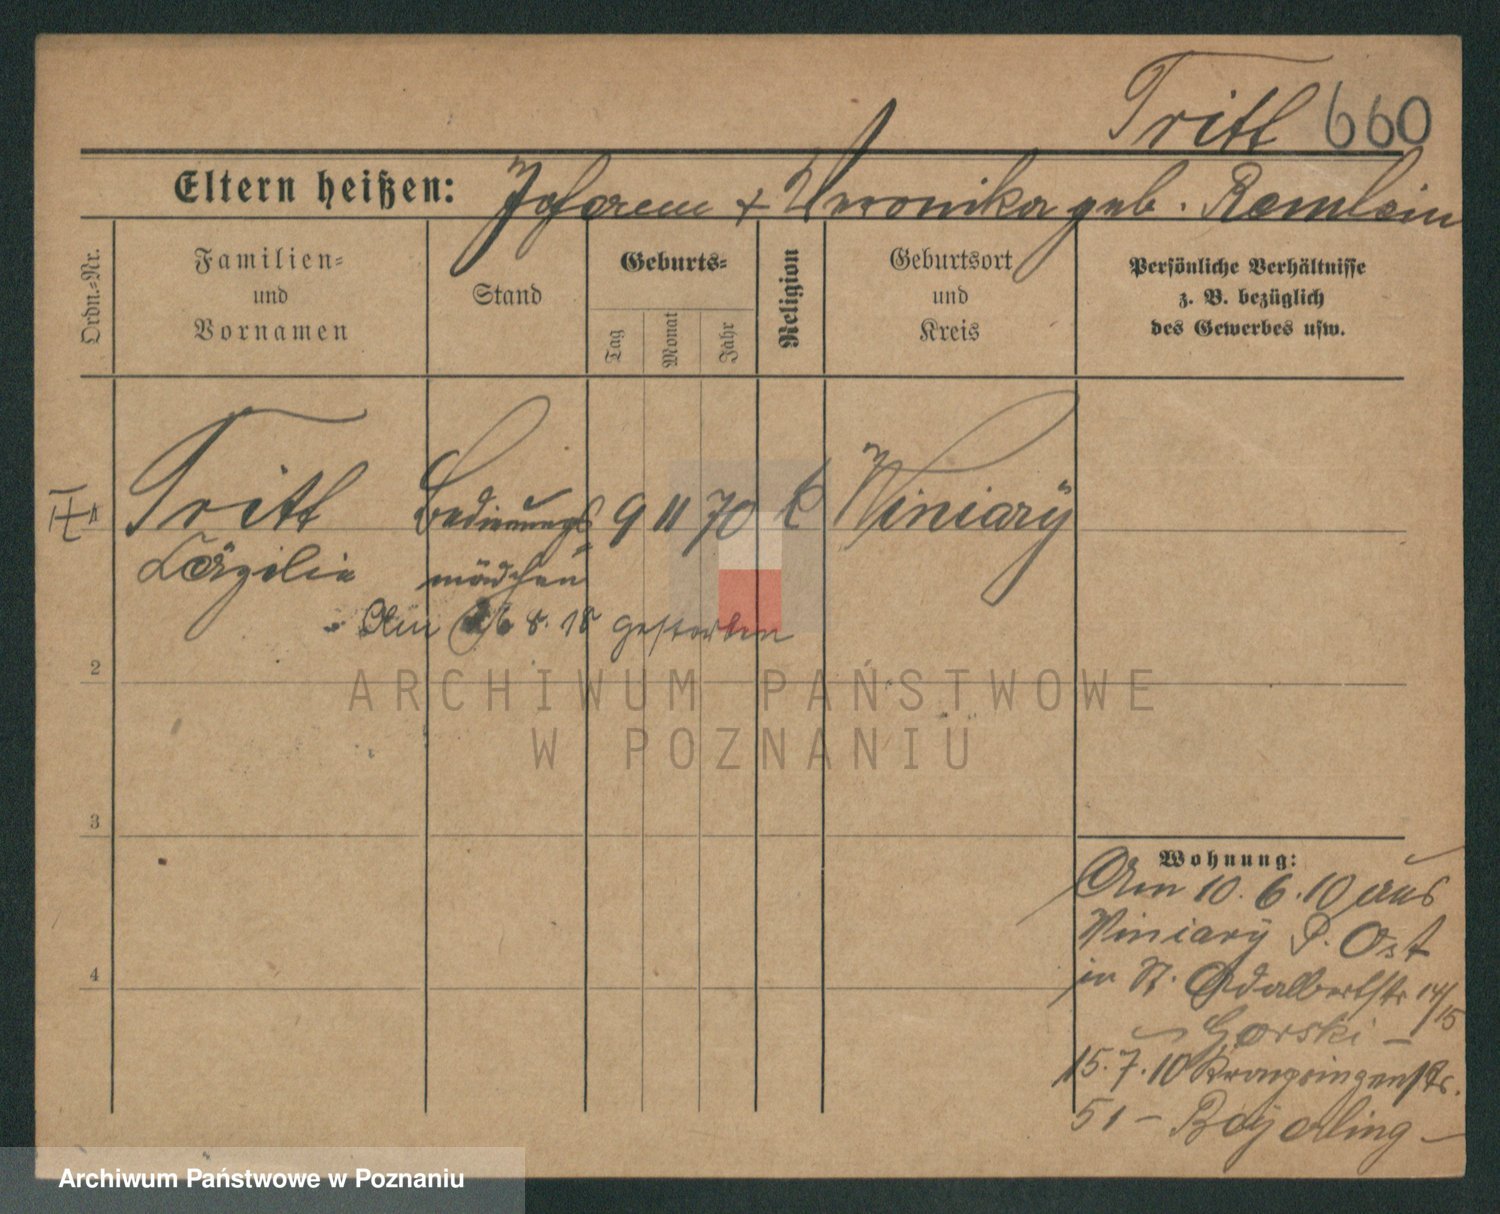 Tritt 660
Eltern heißen: Johann + Veronika geb.
Ordn.-Nr.
Familien-
und
Vornamen
Stand
Geburts-
Tag
Monat
Jahr
Religion
Geburtsort
und
Kreis
Persönliche Verhältnisse
z. B. bezüglich
des Gewerbes usw.
Tritt Bedienungs 9 11 70 k Winiary
Cäzilie mädchen
Am 8. 18 gestorben
2
3
4
Wohnung:
Am 10. 6. 10 aus
Winiary P. Ost
in St. Adalbertstr 14/15
Gorski –
15. 7. 10 Kronprinzenstr.
51 – Bayerling –
ARCHIWUM PAŃSTWOWE
W POZNANIU
Archiwum Państwowe w Poznaniu